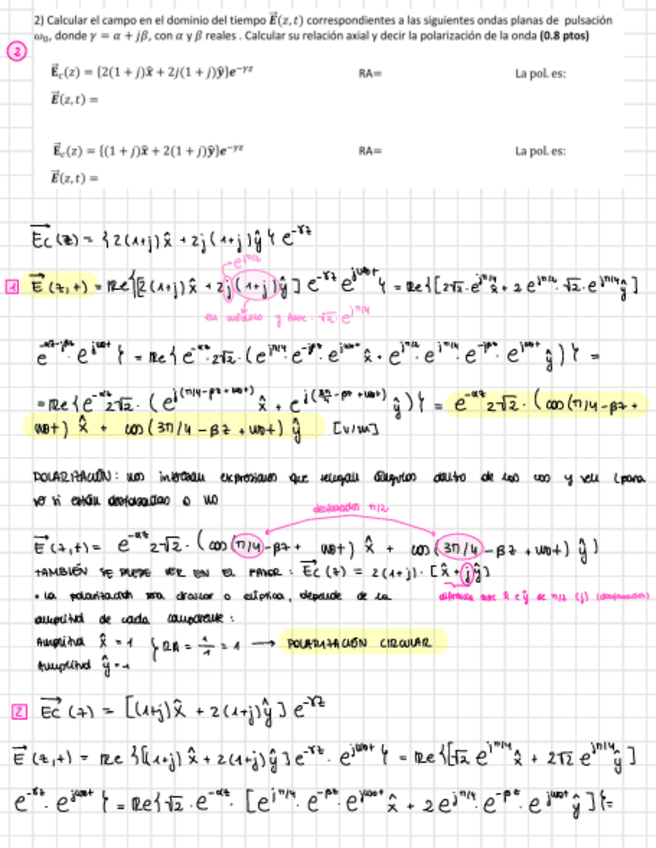 2) Calcular el campo en el dominio del tiempo E⃗(z, t) correspondientes a las siguientes ondas planas de pulsación
ω₀, donde γ = α + jβ, con α y β reales . Calcular su relación axial y decir la polarización de la onda (0.8 ptos)
②
E⃗c(z) = {2(1 + j)x̂ + 2j(1 + j)ŷ}e^-γz RA= La pol. es:
E⃗(z, t) =
E⃗c(z) = {(1 + j)x̂ + 2(1 + j)ŷ}e^-γz RA= La pol. es:
E⃗(z, t) =
E⃗c(z) = {2(1+j)x̂ + 2j(1+j)ŷ} e^-γz
1 E⃗(z,t) = Re{[2(1+j)x̂ + 2j(1+j)ŷ] e^-γz e^jω₀t} = Re{[2√2 · e^jπ/4 x̂ + 2 e^jπ/2 · √2 · e^jπ/4 ŷ]
en módulo y fase: √2 e^jπ/4
e^-αz-jβz · e^jω₀t} = Re{e^-αz · 2√2 · (e^jπ/4 · e^-jβz · e^jω₀t x̂ + e^jπ/2 · e^jπ/4 · e^-jβz · e^jω₀t ŷ)} =
= Re{e^-αz 2√2 · (e^j(π/4-βz+ω₀t) x̂ + e^j(3π/4-βz+ω₀t) ŷ)} = e^-αz 2√2 · (cos(π/4 - βz +
ω₀t) x̂ + cos(3π/4 - βz + ω₀t) ŷ [V/m]
POLARIZACIÓN: nos interesan expresiones que tengan ángulos dentro de los cos y ven (para
ver si están desfasadas o no
desfasados π/2
E⃗(z,t) = e^-αz 2√2 · (cos(π/4 - βz + ω₀t) x̂ + cos(3π/4 - βz + ω₀t) ŷ)
TAMBIÉN SE PUEDE VER EN EL FASOR: E⃗c(z) = 2(1+j) · [x̂ + jŷ]
diferencia entre x̂ e ŷ de π/2 (j) (desfasados)
· la polarización será circular o elíptica, depende de la
amplitud de cada componente:
Amplitud x̂ = 1
} RA = 1/1 = 1 → POLARIZACIÓN CIRCULAR
Amplitud ŷ = 1
2 E⃗c(z) = [(1+j)x̂ + 2(1+j)ŷ] e^-γz
E⃗(z,t) = Re{[(1+j)x̂ + 2(1+j)ŷ] e^-γz · e^jω₀t} = Re{[√2 e^jπ/4 x̂ + 2√2 e^jπ/4 ŷ]
e^-γz · e^jω₀t} = Re{√2 · e^-αz · [e^jπ/4 · e^-βz · e^jω₀t x̂ + 2 e^jπ/4 · e^-βz · e^jω₀t ŷ]} =